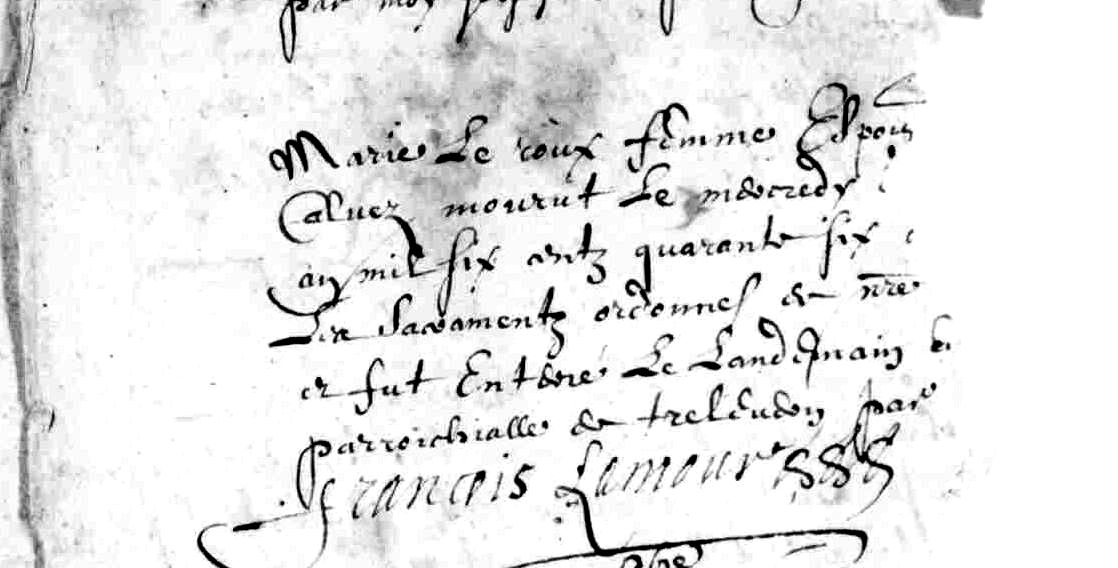 par moy
Marie Le roux femme Espous
Caluez mourut Le mecredy
an mil six centz quarante six
Les Sacramentz ordonnes de nre
et fut Enterré Le Landemain
parroichialle de treleuden par
françois Lamour